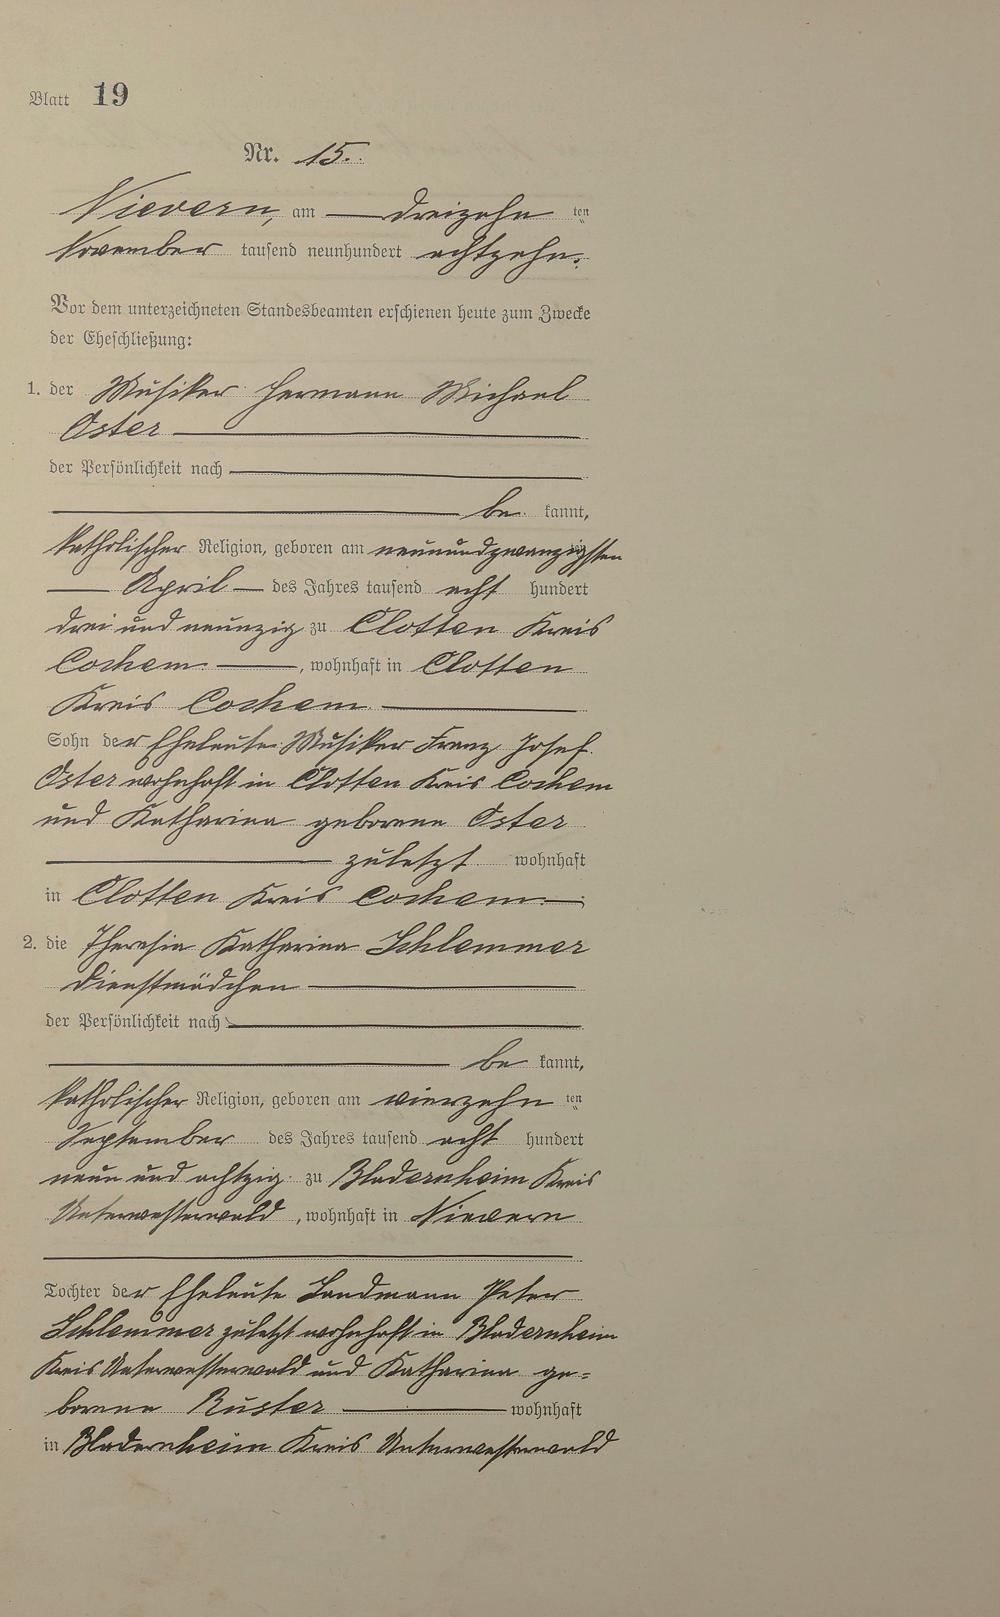 Blatt 19
Nr. 15.
Nievern, am dreizehn ten
November tausend neunhundert achtzehn.
Vor dem unterzeichneten Standesbeamten erschienen heute zum Zwecke
der Eheschließung:
1. der Musiker Hermann Michael
Oster
der Persönlichkeit nach
be kannt,
katholischer Religion, geboren am neunundzwanzigsten
April des Jahres tausend acht hundert
drei und neunzig zu Clotten Kreis
Cochem, wohnhaft in Clotten
Kreis Cochem
Sohn der Eheleute Musiker Franz Josef
Oster wohnhaft in Clotten Kreis Cochem
und Katharina geborene Oster
zuletzt wohnhaft
in Clotten Kreis Cochem
2. die Theresia Katharina Schlemmer
Dienstmädchen
der Persönlichkeit nach
be kannt,
katholischer Religion, geboren am vierzehn ten
September des Jahres tausend acht hundert
neun und achtzig zu Bladernheim Kreis
Unterwesterwald, wohnhaft in Nievern
Tochter der Eheleute Landmann Peter
Schlemmer zuletzt wohnhaft in Bladernheim
Kreis Unterwesterwald und Katharina ge=
borene Ruster wohnhaft
in Bladernheim Kreis Unterwesterwald